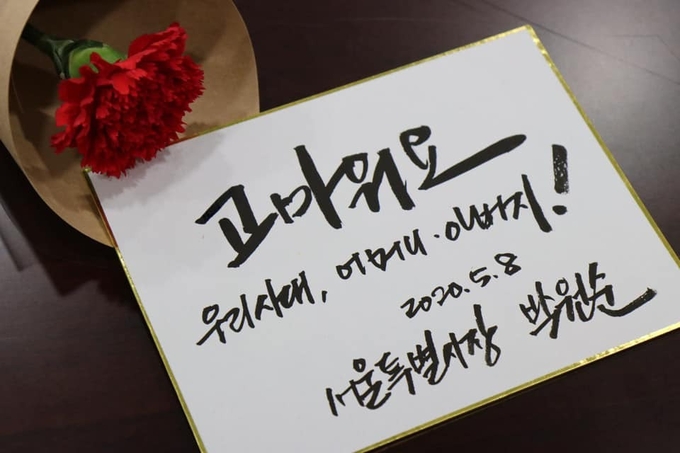 고마워요
우리시대, 어머니·아버지!
2020.5.8
서울특별시장 박원순